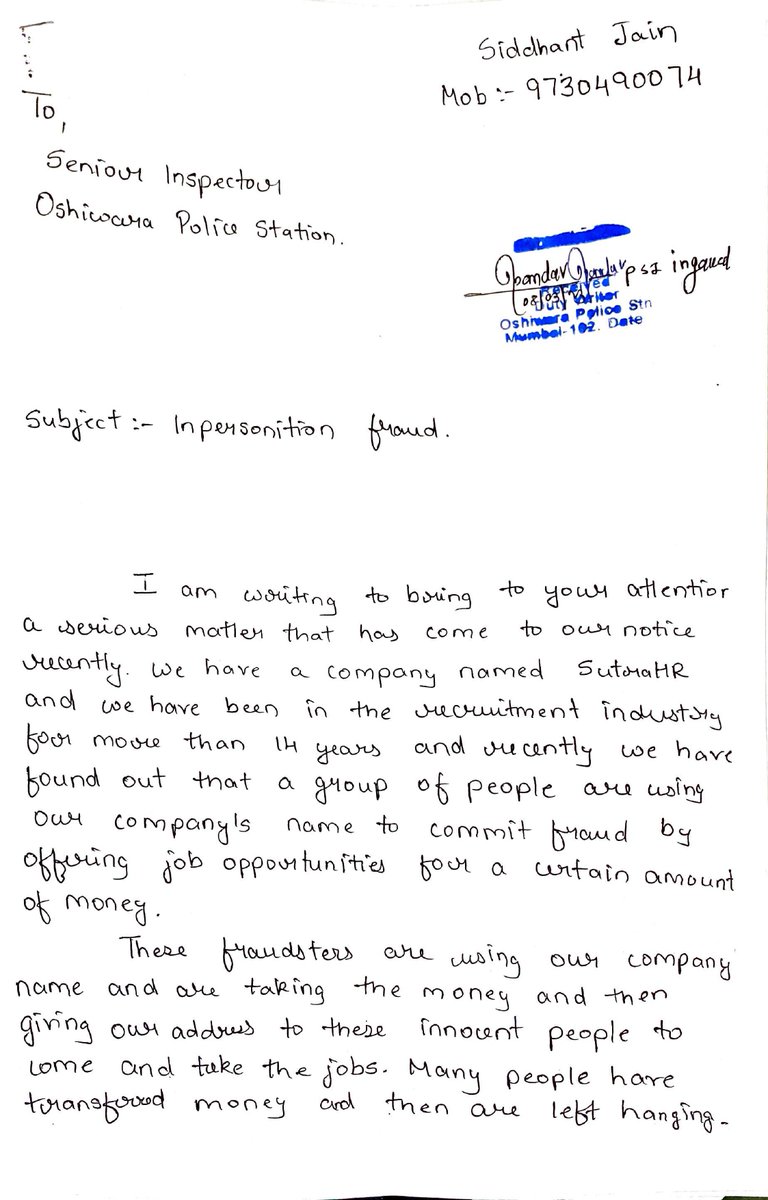 Siddhant Jain
Mob :- 9730490074
To,
Seniour Inspectour
Oshiwara Police Station.
PSI ingawd
Received
Duty Writer
Oshiwara Police Stn
Mumbai-102. Date
Subject :- Inpersonition fraud.
I am writing to bring to your attention
a serious matter that has come to our notice
recently. We have a company named SutraHR
and we have been in the recruitment industry
for more than 14 years and recently we have
found out that a group of people are using
our company's name to commit fraud by
offering job opportunities for a certain amount
of money.
These fraudsters are using our company
name and are taking the money and then
giving our address to these innocent people to
come and take the jobs. Many people have
transferred money and then are left hanging.